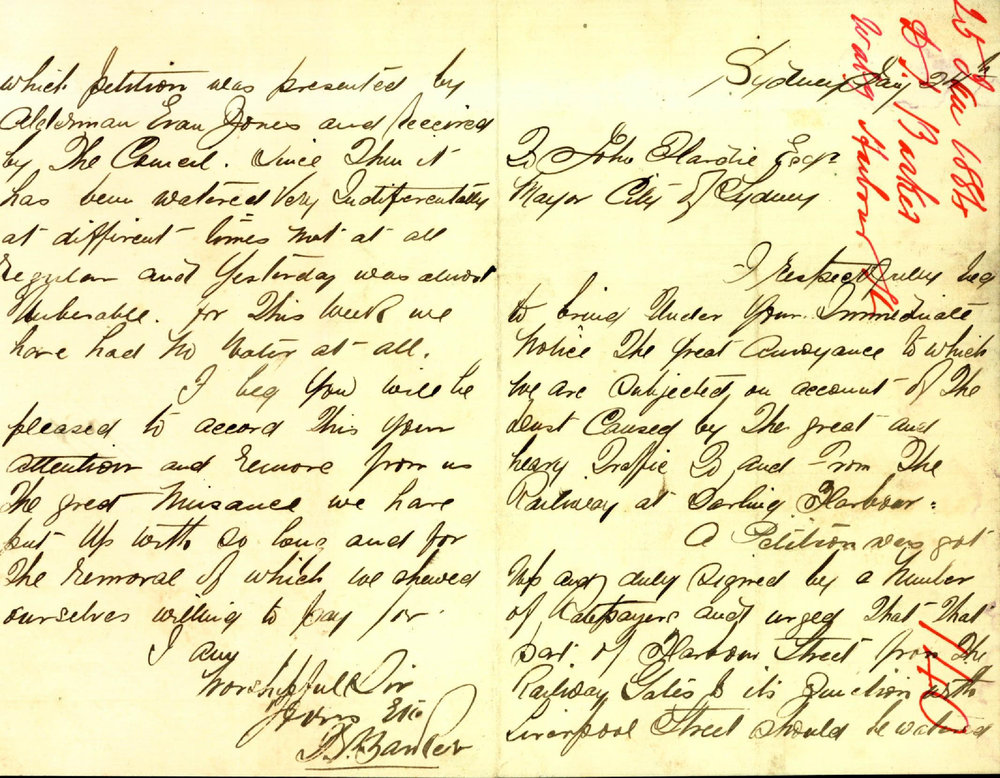 Sydney Jany 24th
To John Hardie Esqr
Mayor City of Sydney
I respectfully beg
to bring Under Your Immediate
Notice The great Annoyance to which
We are Subjected on account of The
dust Caused by The great and
heavy Traffic To and From The
Railway at Darling Harbour.
A Petition was got
Up and duly Signed by a Number
of Ratepayers and urged That That
Part of Harbour Street from The
Railway Gates to its Junction with
Liverpool Street should be watered
which petition was presented by
Alderman Evan Jones and Received
by The Council. Since Then it
has been watered Very Indifferentally
at different times Not at all
Regular and Yesterday was almost
Unberable. for This Week we
have had No Water at all.
I beg You will be
pleased to accord This Your
attention and Remove from us
The great Nuisance we have
put Up with so long and for
The Removal of which we shewed
ourselves willing to pay for.
I am
Worshipfull Sir
Yours Etc
D. Barker
25 Jan 1888
D. Barker
Harbour St
140